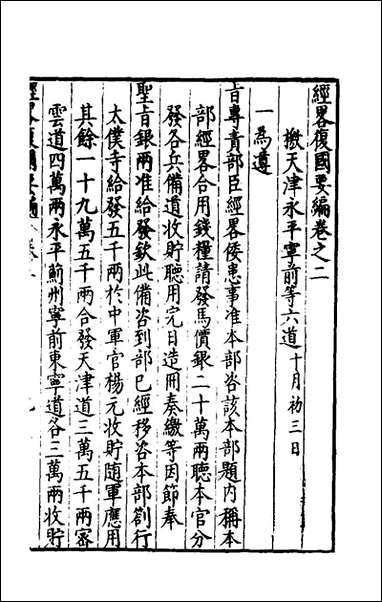 經略復國要編卷之二
檄天津永平寧前等六道十月初三日
一為遵
旨專責部臣經略倭患事准本部咨該本部題內稱本
部經略合用錢糧請發馬價銀二十萬兩聽本官分
發各兵備道收貯聽用完日造冊奏繳等因節奉
聖旨銀兩准給發欽此備咨到部已經移咨本部劄行
太僕寺給發五千兩於中軍官楊元收貯隨軍應用
其餘一十九萬五千兩合發天津道三萬五千兩密
雲道四萬兩永平薊州寧前東寧道各三萬兩收貯